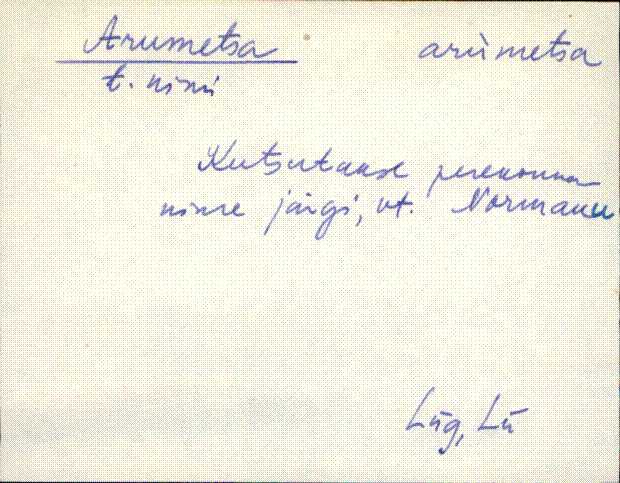 Arumetsa arùmetsa
t. nimi
Kutsutakse perekonna
nime järgi, vt. Normann
Lüg, Lü